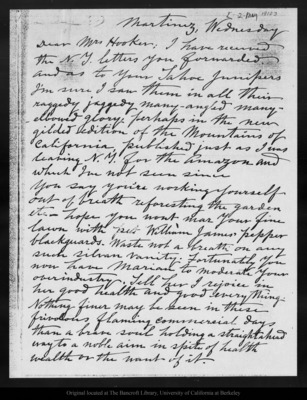 Martinez, Wednesday
Dear Mrs Hooker; I have received
the N.Y. letters you forwarded
and as to your Tahoe Junipers
I'm sure I saw them in all their
raggedy jaggedy many-angled many-
elbowed glory; perhaps in the new
gilded edition of the Mountains of
California, published just as I was
leaving N.Y. for the Amazon and
which I've not seen since
You say you're working yourself
out of breath reforesting the garden
it - hope you wont mar your fine
lawn with William James pepper
blackguards. Waste not a breath on any
such silvan vanity. Fortunately you
now have Marian to moderate your
overindustry. Tell her I rejoice in
her good health and good everything.
Nothing finer may be seen in these
frivolous flaming commercial days
than a brave soul holding a straightahead
way to a noble aim in spite of health
wealth or the want of it.
Original located at The Bancroft Library, University of California at Berkeley